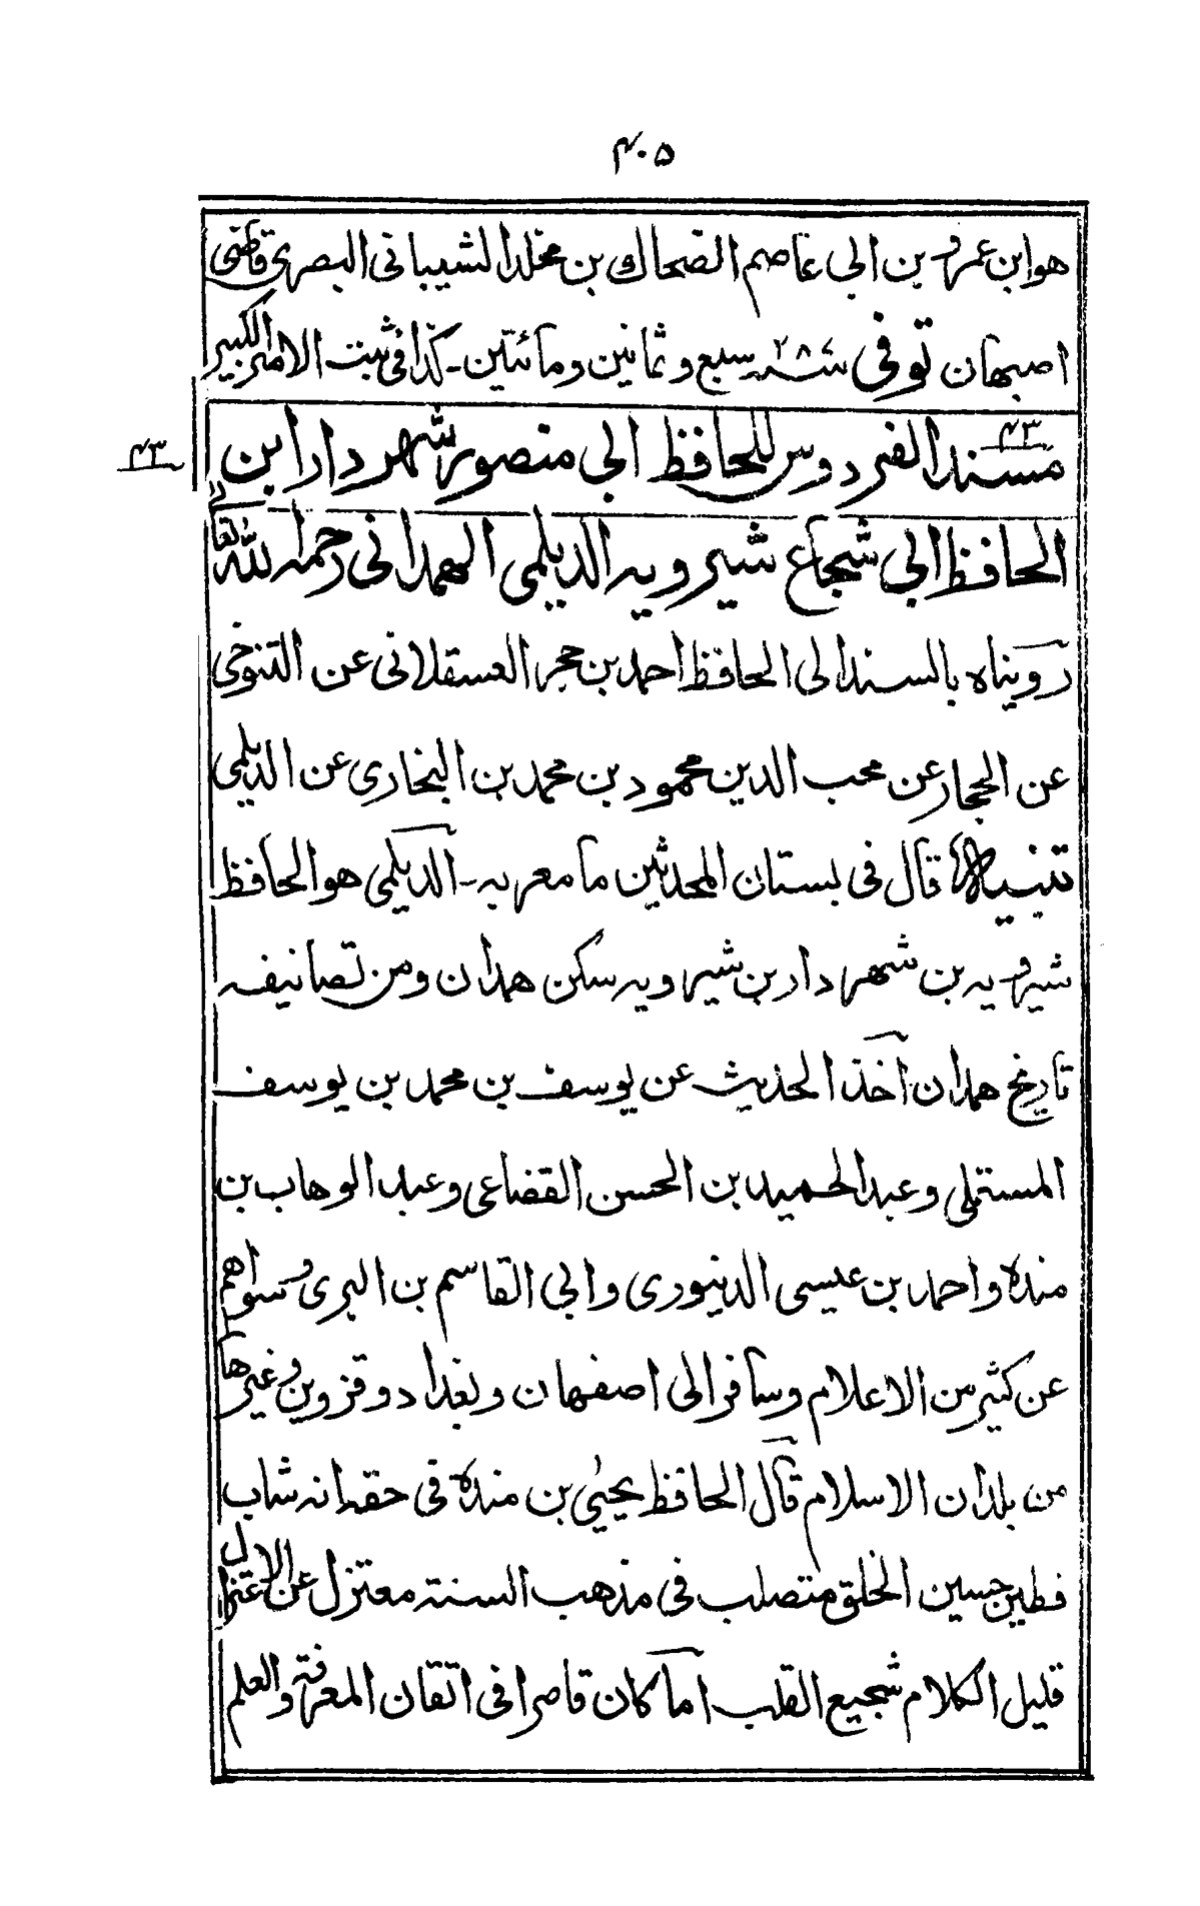 ۴۰۵
هو ابن عمرو بن ابی عاصم الضحاك بن مخلد الشیبانی البصری قاضی
اصبهان توفی سنة ۲۸۷ سبع وثمانین ومائتین۔ كذا فی ثبت الامیر الكبیر
۴۳
۴۳
مسند الفردوس للحافظ ابی منصور شهردار ابن
الحافظ ابی شجاع شیرویه الدیلمی الهمدانی رحمه الله تعالی
رویناه بالسند الی الحافظ احمد بن حجر العسقلانی عن التنوخی
عن الحجار عن محب الدین محمود بن محمد بن البخاری عن الدیلمی
تنبیه قال فی بستان المحدثین ما معربه۔ الدیلمی هو الحافظ
شیرویه بن شهردار بن شیرویه سكن همدان ومن تصانیفه
تاریخ همدان اخذ الحدیث عن یوسف بن محمد بن یوسف
المستملی وعبد الحمید بن الحسن القضاعی وعبد الوهاب بن
منده واحمد بن عیسی الدینوری وابی القاسم بن البری وسواهم
عن كثیر من الاعلام وسافر الی اصفهان وبغداد وقزوین وغیرها
من بلدان الاسلام قال الحافظ یحیی بن منده فی حقه انه شاب
فطین حسین الخلق متصلب فی مذهب السنة معتزل عن الاعتزال
قلیل الكلام شجیع القلب اما كان قاصرا فی اتقان المعرفة والعلم